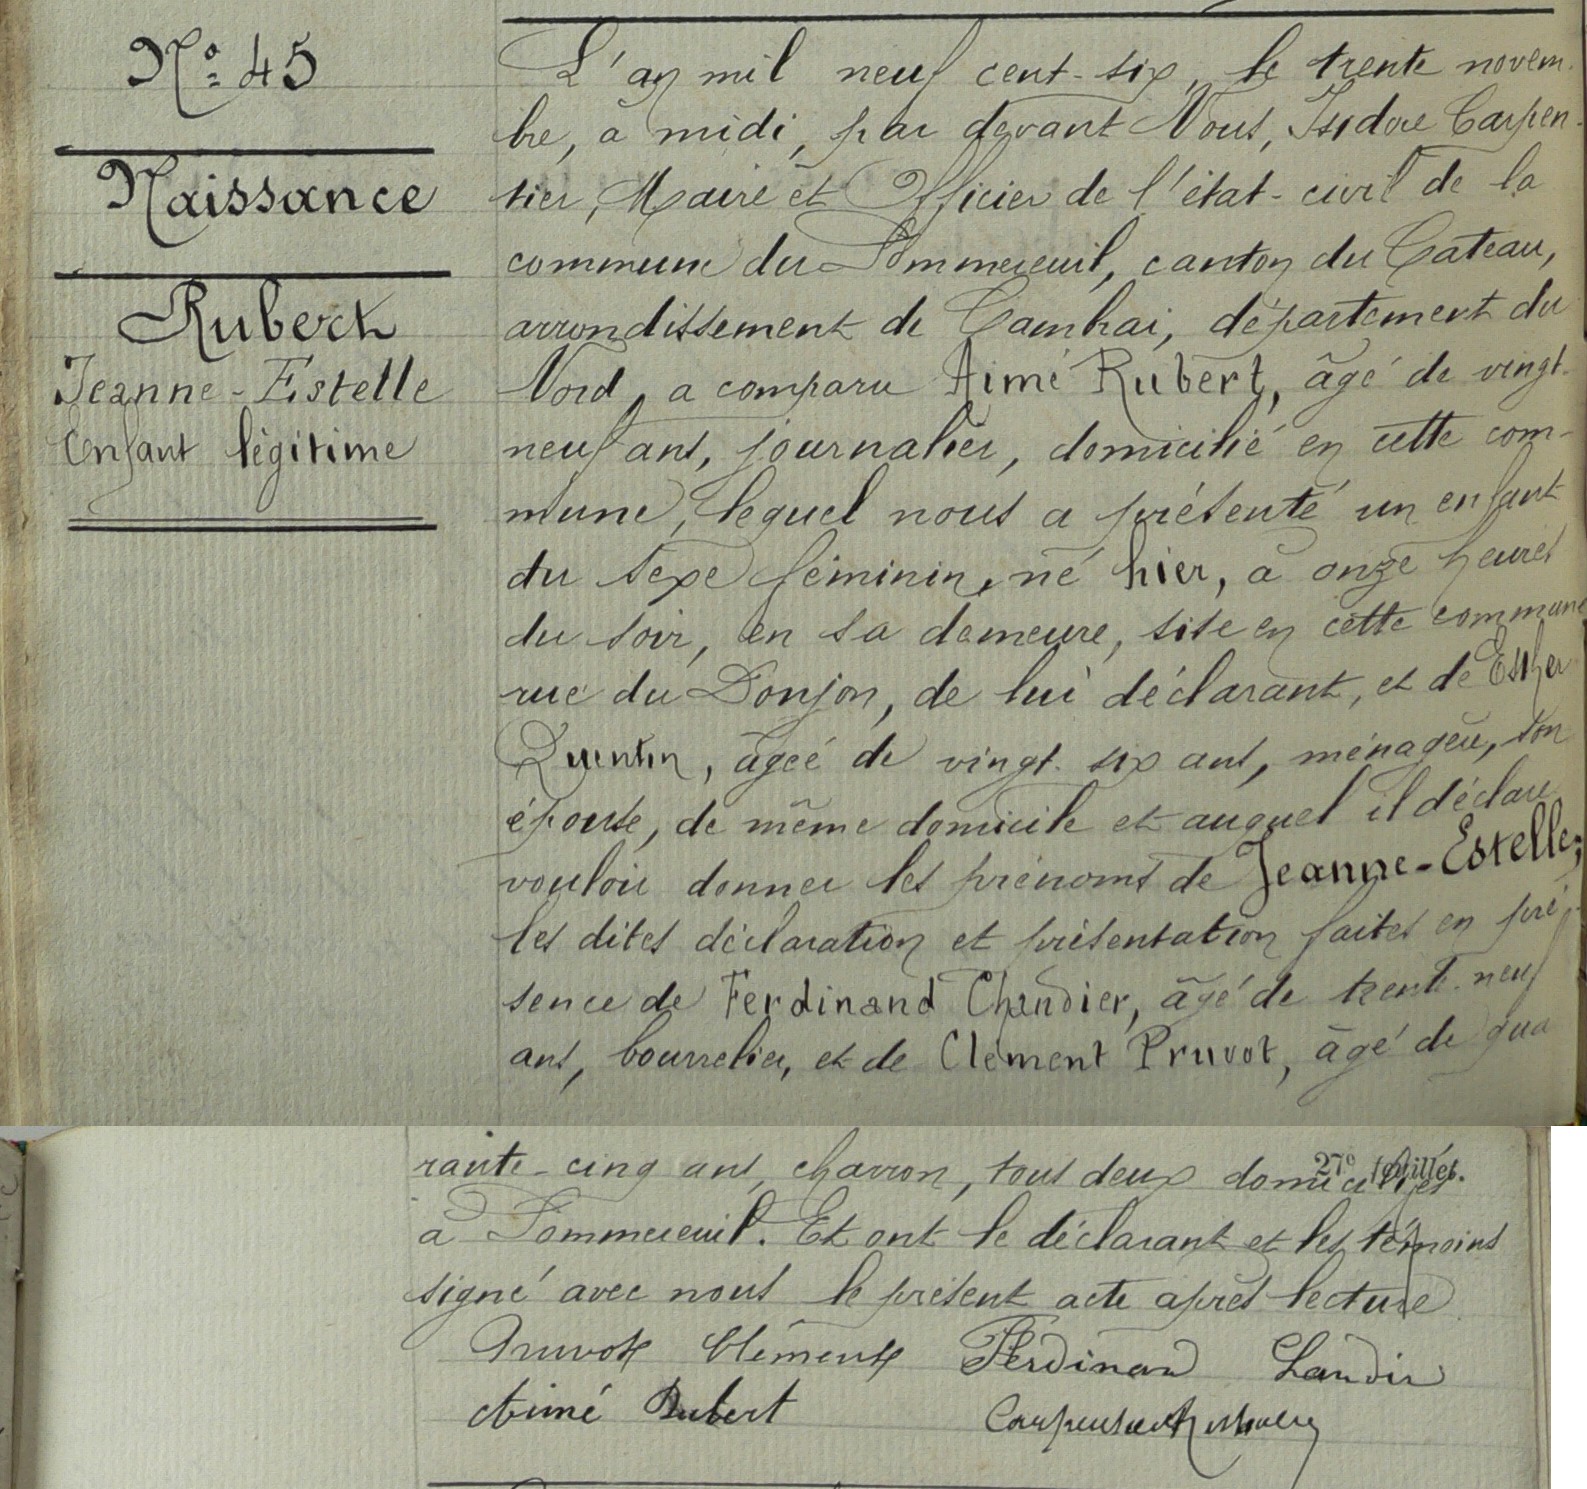 N° 45
Naissance
Rubert
Jeanne-Estelle
Enfant légitime
L'an mil neuf cent-six, le trente novem-
bre, à midi, par devant Nous, Isidore Carpen-
tier, Maire et Officier de l'état-civil de la
commune du Pommereuil, canton du Cateau,
arrondissement de Cambrai, département du
Nord, a comparu Aimé Rubert, âgé de vingt-
neuf ans, journalier, domicilié en cette com-
mune, lequel nous a présenté un enfant
du sexe féminin, né hier, à onze heures
du soir, en sa demeure, sise en cette commune
rue du Donjon, de lui déclarant, et de Esther
Quentin, âgée de vingt-six ans, ménagère, son
épouse, de même domicile et auquel il déclare
vouloir donner les prénoms de Jeanne-Estelle;
les dites déclaration et présentation faites en pré-
sence de Ferdinand Chandier, âgé de trente-neuf
ans, bourrelier, et de Clément Pruvot, âgé de qua
rante-cinq ans, charron, tous deux domiciliés
27e feuillet.
à Pommereuil. Et ont le déclarant et les témoins
signé avec nous le présent acte après lecture
Pruvot Clément Ferdinand Landir
Aimé Rubert